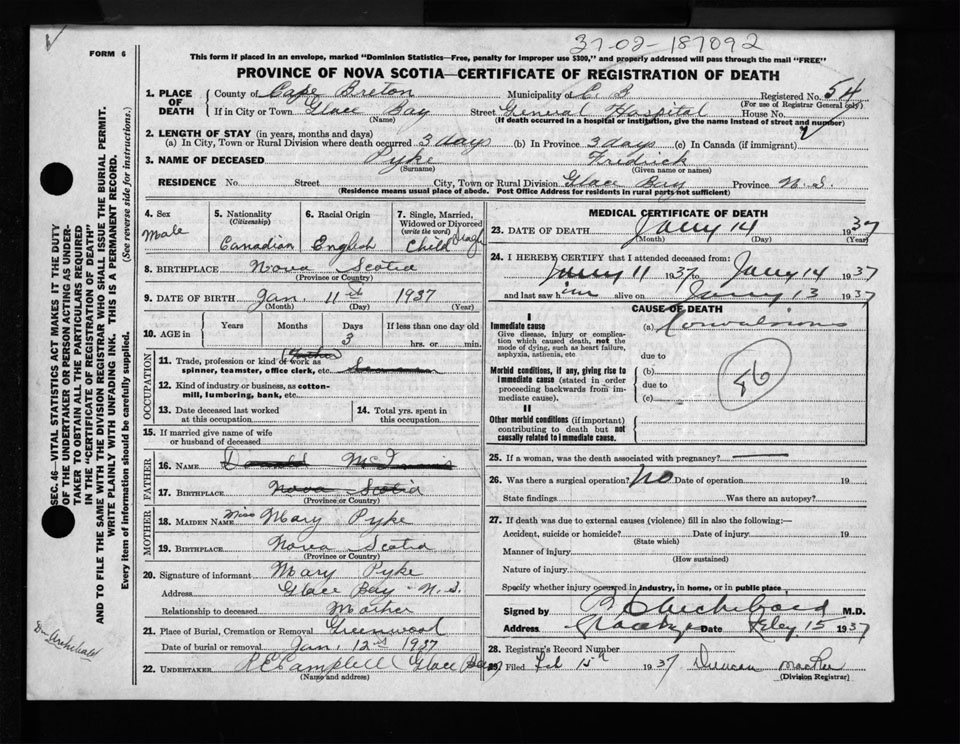 37-02-187092
FORM 6
This form if placed in an envelope, marked "Dominion Statistics—Free, penalty for improper use $300," and properly addressed will pass through the mail "FREE"
PROVINCE OF NOVA SCOTIA—CERTIFICATE OF REGISTRATION OF DEATH
1. PLACE OF DEATH County of Cape Breton Municipality of C. B Registered No. 54
(For use of Registrar General only)
If in City or Town Glace Bay Street General Hospital House No.
(Name) (If death occurred in a hospital or institution, give the name instead of street and number)
2. LENGTH OF STAY (in years, months and days)
(a) In City, Town or Rural Division where death occurred 3 days (b) In Province 3 days (c) In Canada (if immigrant)
3. NAME OF DECEASED Pyke Fridrick
(Surname) (Given name or names)
RESIDENCE No. Street City, Town or Rural Division Glace Bay Province N.S.
(Residence means usual place of abode. Post Office Address for residents in rural parts not sufficient)
4. Sex Male
5. Nationality (Citizenship) Canadian
6. Racial Origin English
7. Single, Married, Widowed or Divorced (write the word) Child Single
8. BIRTHPLACE Nova Scotia
(Province or Country)
9. DATE OF BIRTH Jan. 11 1937
(Month) (Day) (Year)
10. AGE in Years Months Days 3 If less than one day old hrs. or min.
OCCUPATION
11. Trade, profession or kind of work as spinner, teamster, office clerk, etc.
12. Kind of industry or business, as cotton-mill, lumbering, bank, etc.
13. Date deceased last worked at this occupation
14. Total yrs. spent in this occupation.
15. If married give name of wife or husband of deceased
FATHER
16. NAME Donald McInnis
17. BIRTHPLACE Nova Scotia
(Province or Country)
MOTHER
18. MAIDEN NAME Miss Mary Pyke
19. BIRTHPLACE Nova Scotia
(Province or Country)
20. Signature of informant Mary Pyke
Address Glace Bay - N. S.
Relationship to deceased Mother
21. Place of Burial, Cremation or Removal Greenwood
Date of burial or removal Jan. 12 1937
22. UNDERTAKER Campbell (Glace Bay)
(Name and address)
MEDICAL CERTIFICATE OF DEATH
23. DATE OF DEATH Jany 14 1937
(Month) (Day) (Year)
24. I HEREBY CERTIFY that I attended deceased from:
Jany 11 1937 to Jany 14 1937
and last saw him alive on Jany 13 1937
CAUSE OF DEATH
I
Immediate cause
Give disease, injury or complication which caused death, not the mode of dying, such as heart failure, asphyxia, asthenia, etc
(a) Convulsions
due to
Morbid conditions, if any, giving rise to immediate cause (stated in order proceeding backwards from immediate cause).
(b)
due to
(c)
II
Other morbid conditions (if important) contributing to death but not causally related to immediate cause.
25. If a woman, was the death associated with pregnancy?
26. Was there a surgical operation? No Date of operation 19
State findings Was there an autopsy?
27. If death was due to external causes (violence) fill in also the following:—
Accident, suicide or homicide? Date of injury 19
(State which)
Manner of injury
(How sustained)
Nature of injury
Specify whether injury occurred in industry, in home, or in public place
Signed by M.D.
Address Date Feby 15 1937
28. Registrar's Record Number
29. Filed Feb 15th 1937 Duncan MacRae
(Division Registrar)
SEC. 46—VITAL STATISTICS ACT MAKES IT THE DUTY
OF THE UNDERTAKER OR PERSON ACTING AS UNDER-
TAKER TO OBTAIN ALL THE PARTICULARS REQUIRED
IN THE "CERTIFICATE OF REGISTRATION OF DEATH"
AND TO FILE THE SAME WITH THE DIVISION REGISTRAR WHO SHALL ISSUE THE BURIAL PERMIT.
WRITE PLAINLY WITH UNFADING INK. THIS IS A PERMANENT RECORD.
Every item of information should be carefully supplied. (See reverse side for instructions.)
Dr. Archibald